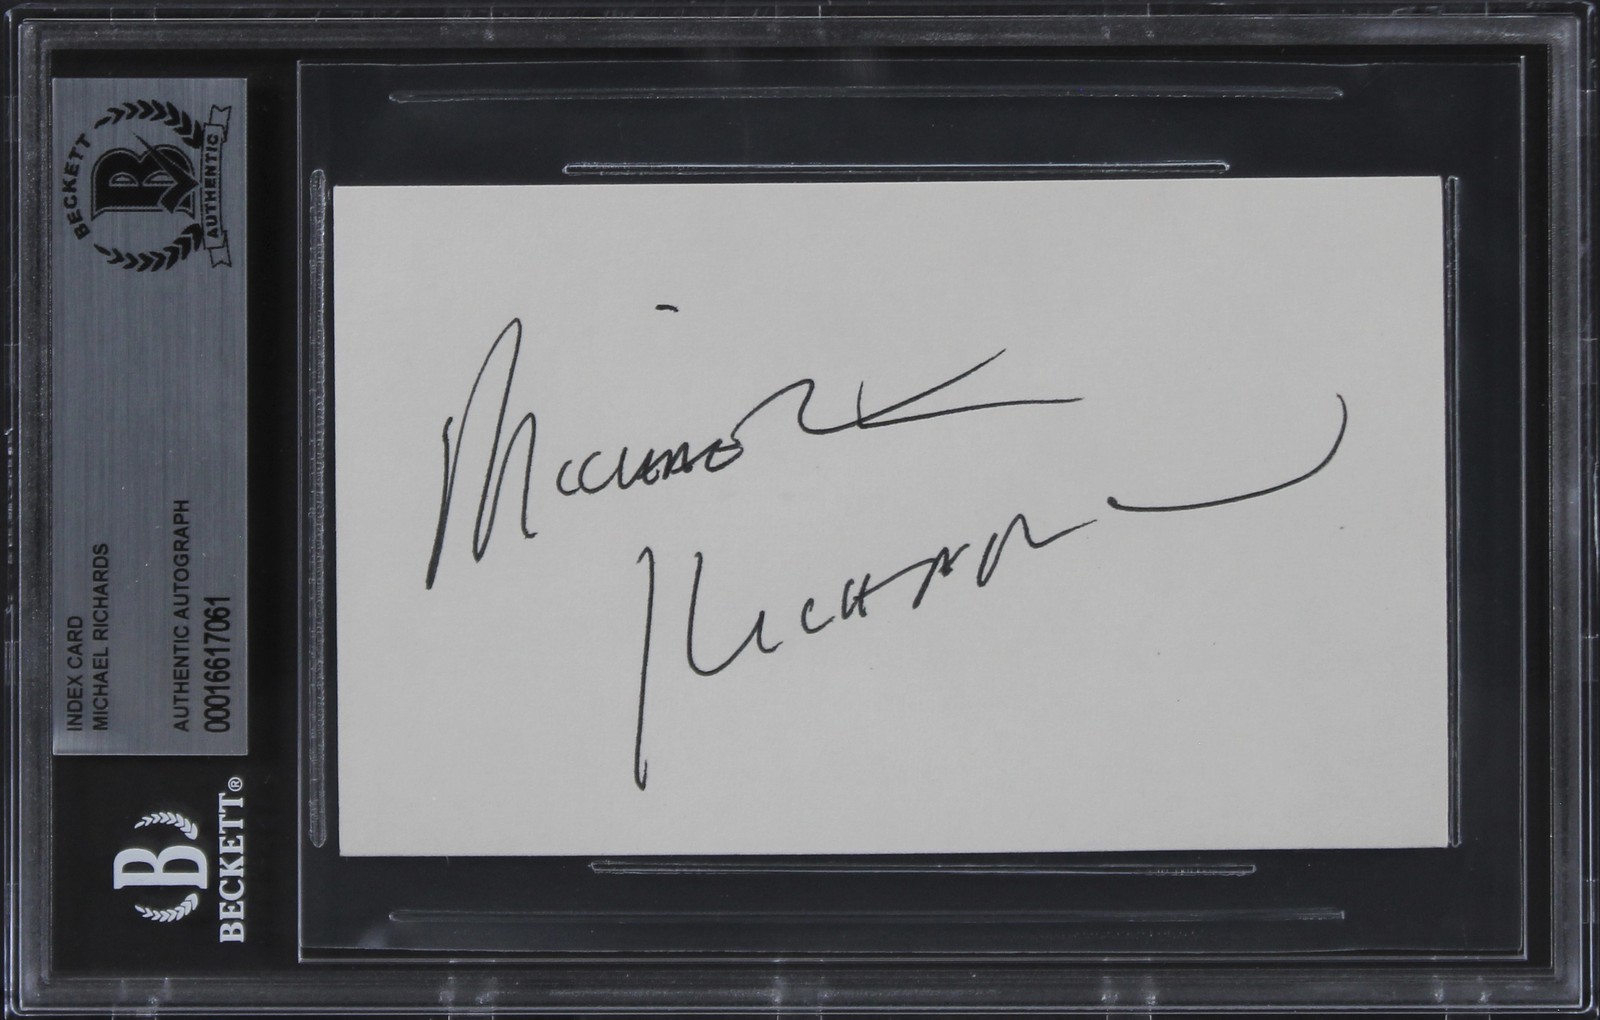 BECKETT
B
AUTHENTIC
INDEX CARD
MICHAEL RICHARDS
AUTHENTIC AUTOGRAPH
00016617061
B
BECKETT®
Michael
Richards